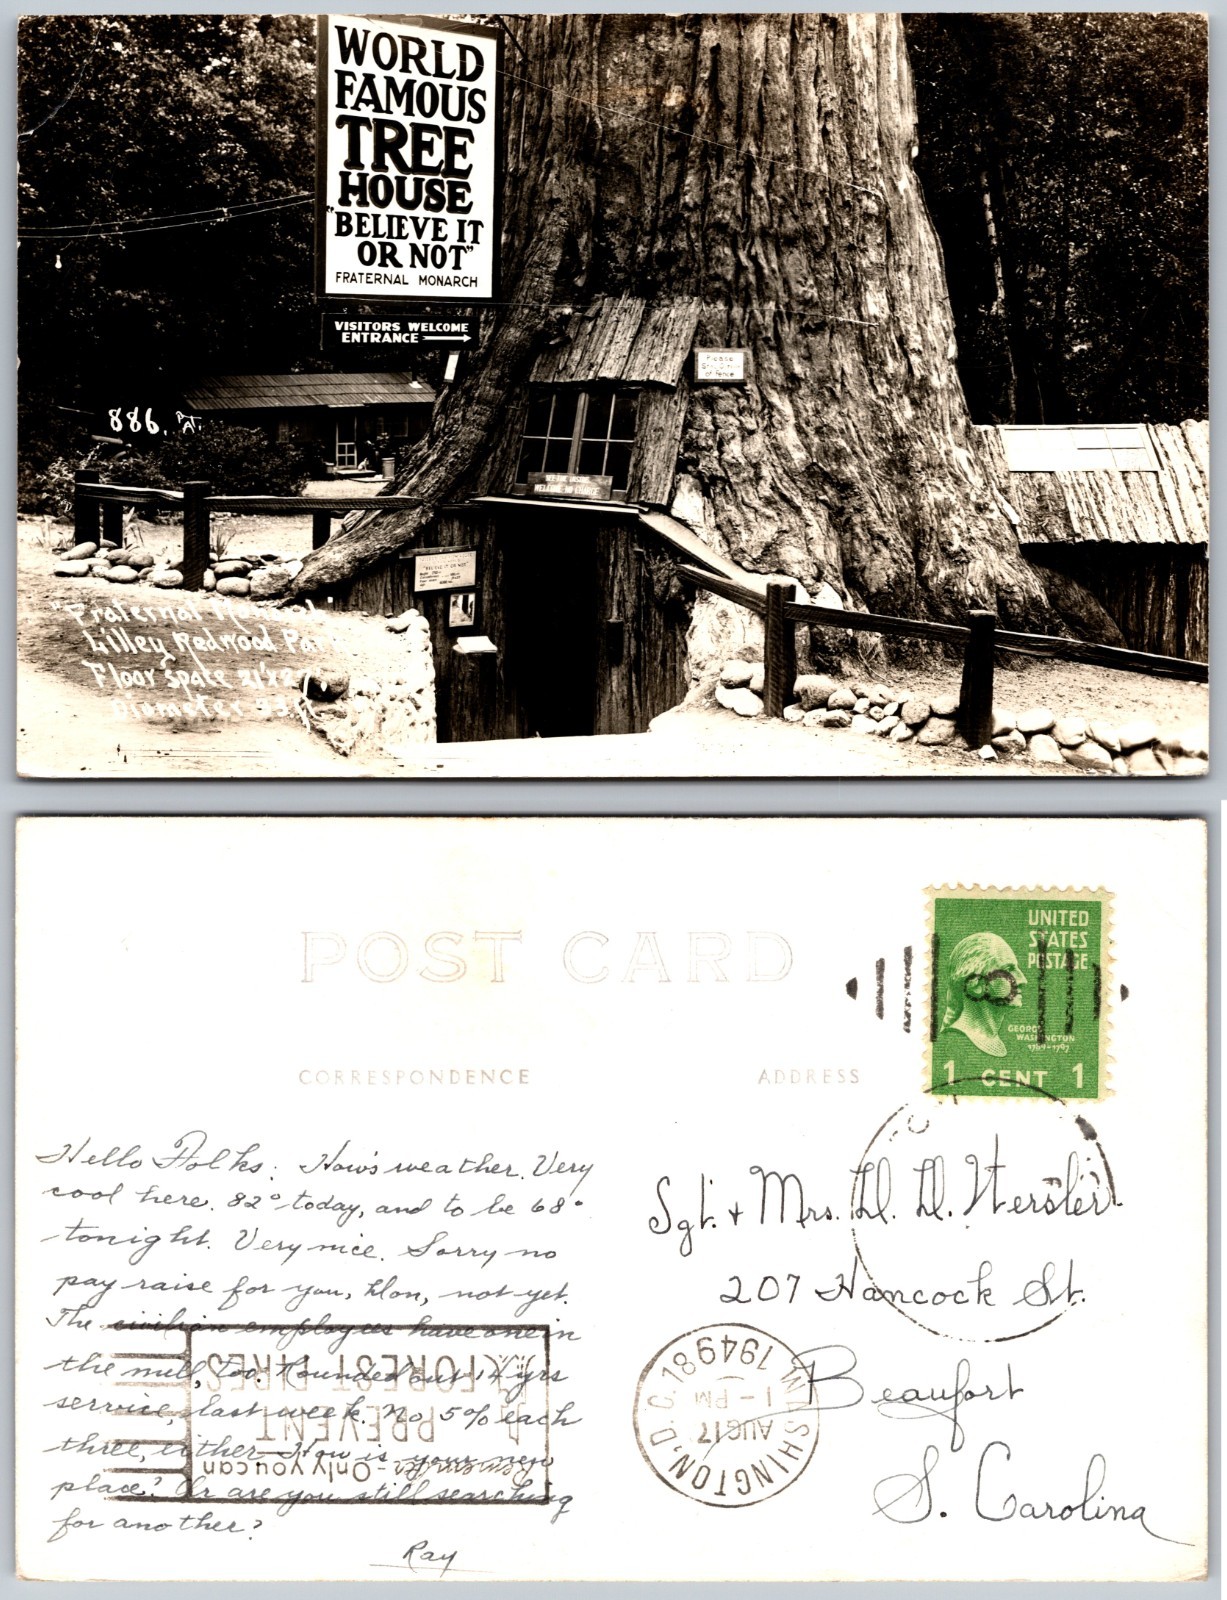 WORLD
FAMOUS
TREE
HOUSE
"BELIEVE IT
OR NOT"
FRATERNAL MONARCH
VISITORS WELCOME
ENTRANCE
Please
of Fence
886.
SEE THE INSIDE
WELCOME NO CHARGE
"BELIEVE IT OR NOT"
"Fraternal Monarch
Lilley Redwood Park
Floor space 21'x27'
Diameter 33 ft
POST CARD
CORRESPONDENCE
ADDRESS
UNITED
STATES
POSTAGE
8
GEORGE
WASHINGTON
1789-1797
1 CENT 1
Hello Folks: How's weather. Very
cool here. 82° today, and to be 68°
tonight. Very nice. Sorry no
pay raise for you, Don, not yet.
The civilian employees have one in
the mill, too. Rounded out 14 yrs
service, last week. No 5% each
three, either. How is your new
place? Or are you still searching
for another?
Ray
Sgt. & Mrs. D. D.
207 Hancock St.
Beaufort
S. Carolina
WASHINGTON, D.C. 18
AUG 17
1 - PM
1949
Remember - Only you can
PREVENT
FOREST FIRES